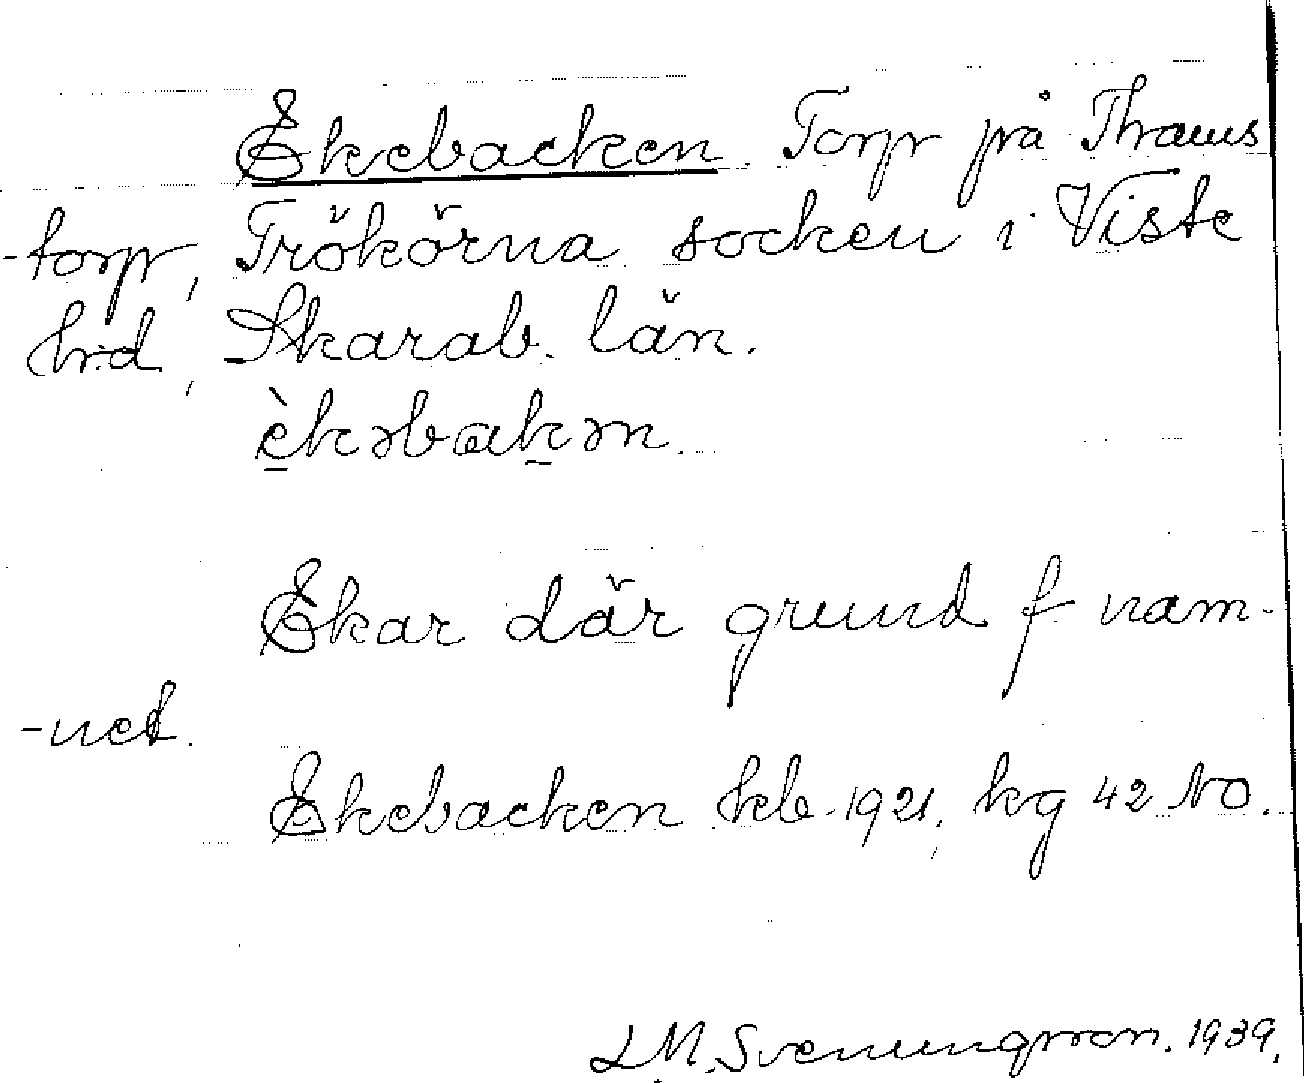 Ekebacken. Torp på Thams
-torp, Trökörna socken i Viste
hrd, Skarab. län.
èkəbakən.
Ekar där grund f nam-
-net.
Ekebacken hb. 1921, kg 42 NO.
L.M. Svenungsson. 1939.